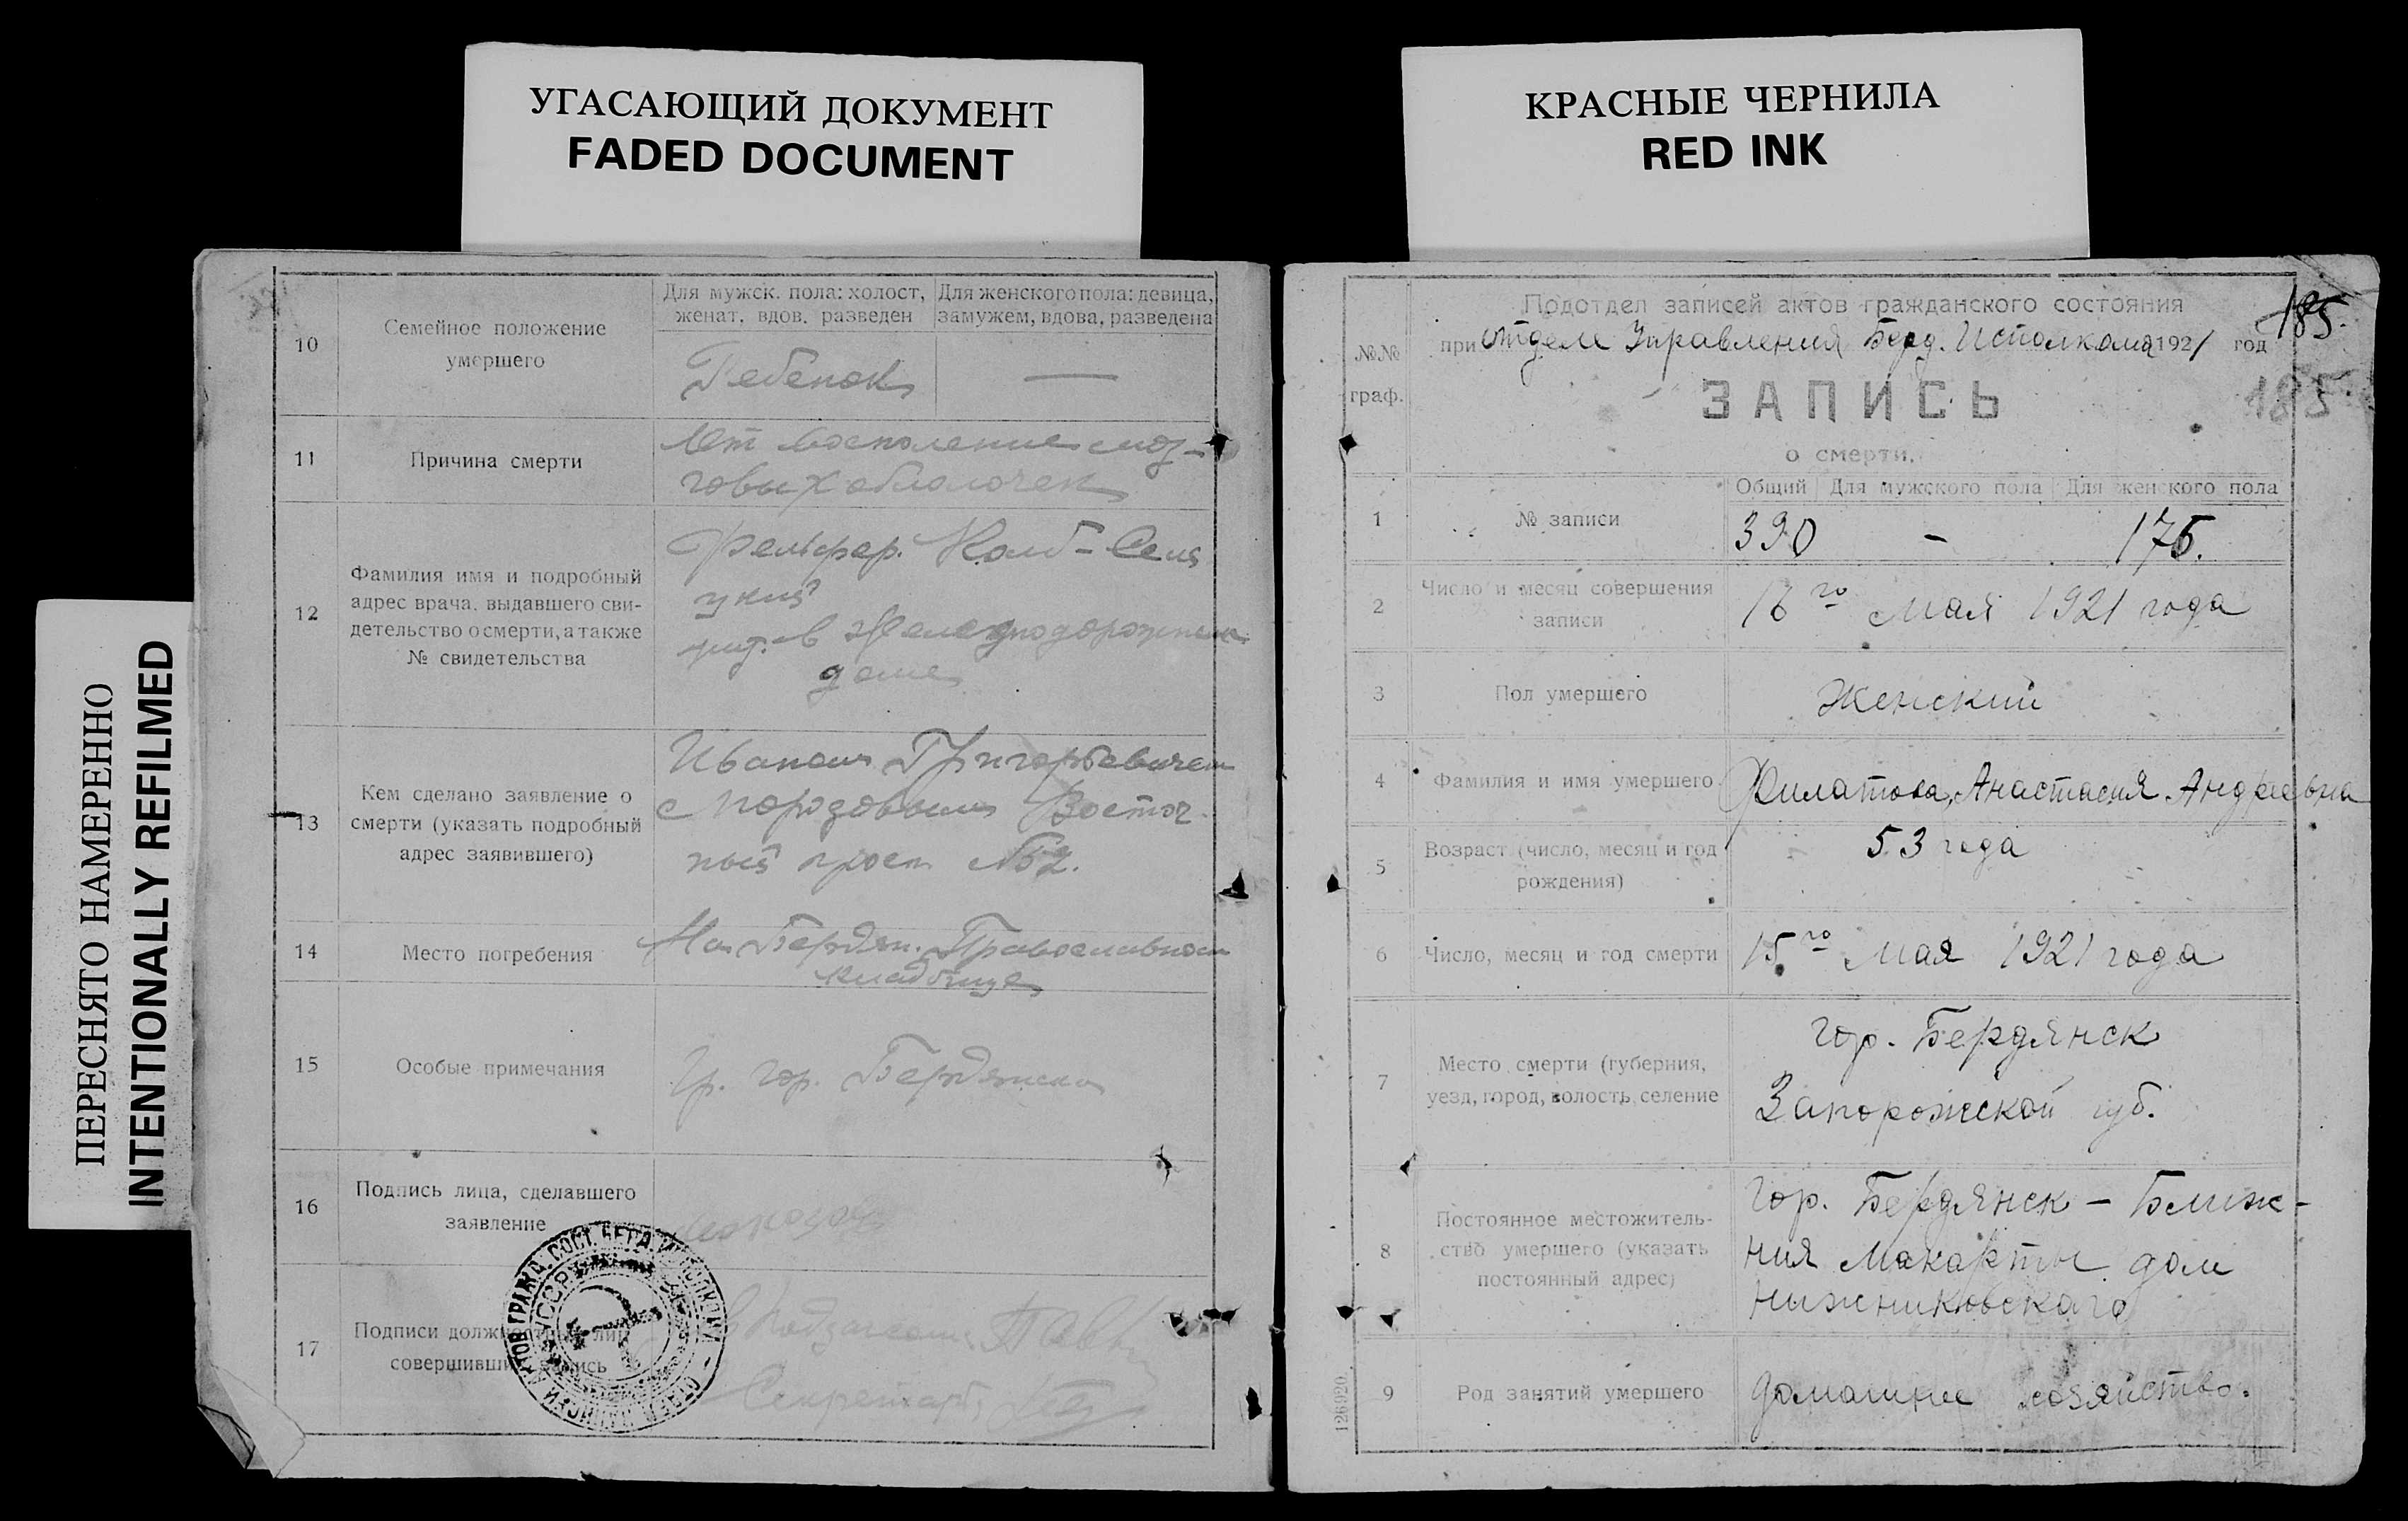 УГАСАЮЩИЙ ДОКУМЕНТ
FADED DOCUMENT
КРАСНЫЕ ЧЕРНИЛА
RED INK
ПЕРЕСНЯТО НАМЕРЕННО
INTENTIONALLY REFILMED
10
Семейное положение
умершего
Для мужск. пола: холост,
женат, вдов, разведен
Для женского пола: девица,
замужем, вдова, разведена
Ребенок
—
11
Причина смерти
От воспаление моз-
говых оболочек
12
Фамилия имя и подробный
адрес врача, выдавшего сви-
детельство о смерти, а также
№ свидетельства
Фельдшер.
в Железнодорожном
доме
13
Кем сделано заявление о
смерти (указать подробный
адрес заявившего)
Иваном Григорьевичем
Восточ-
ный просп №2.
14
Место погребения
На Бердян. Православном
кладбище
15
Особые примечания
Гр. гор. Бердянска
16
Подпись лица, сделавшего
заявление
17
Подписи должностных лиц
совершивших запись
Секретарь
185.
185
№№
граф.
Подотдел записей актов гражданского состояния
при отделе Управления Берд. Исполкома 1921 год
ЗАПИСЬ
о смерти.
Общий
Для мужского пола
Для женского пола
1
№ записи
390
-
175.
2
Число и месяц совершения
записи
16го мая 1921 года
3
Пол умершего
Женский
4
Фамилия и имя умершего
Филатова, Анастасия Андреевна
5
Возраст (число, месяц и год
рождения)
53 года
6
Число, месяц и год смерти
15го Мая 1921 года
7
Место смерти (губерния,
уезд, город, волость, селение
гор. Бердянск
Запорожской губ.
8
Постоянное местожитель-
ство умершего (указать
постоянный адрес)
гор. Бердянск - Ближ-
ния Макарты дом
Нижниковскаго
9
Род занятий умершего
домашнее хозяйство.